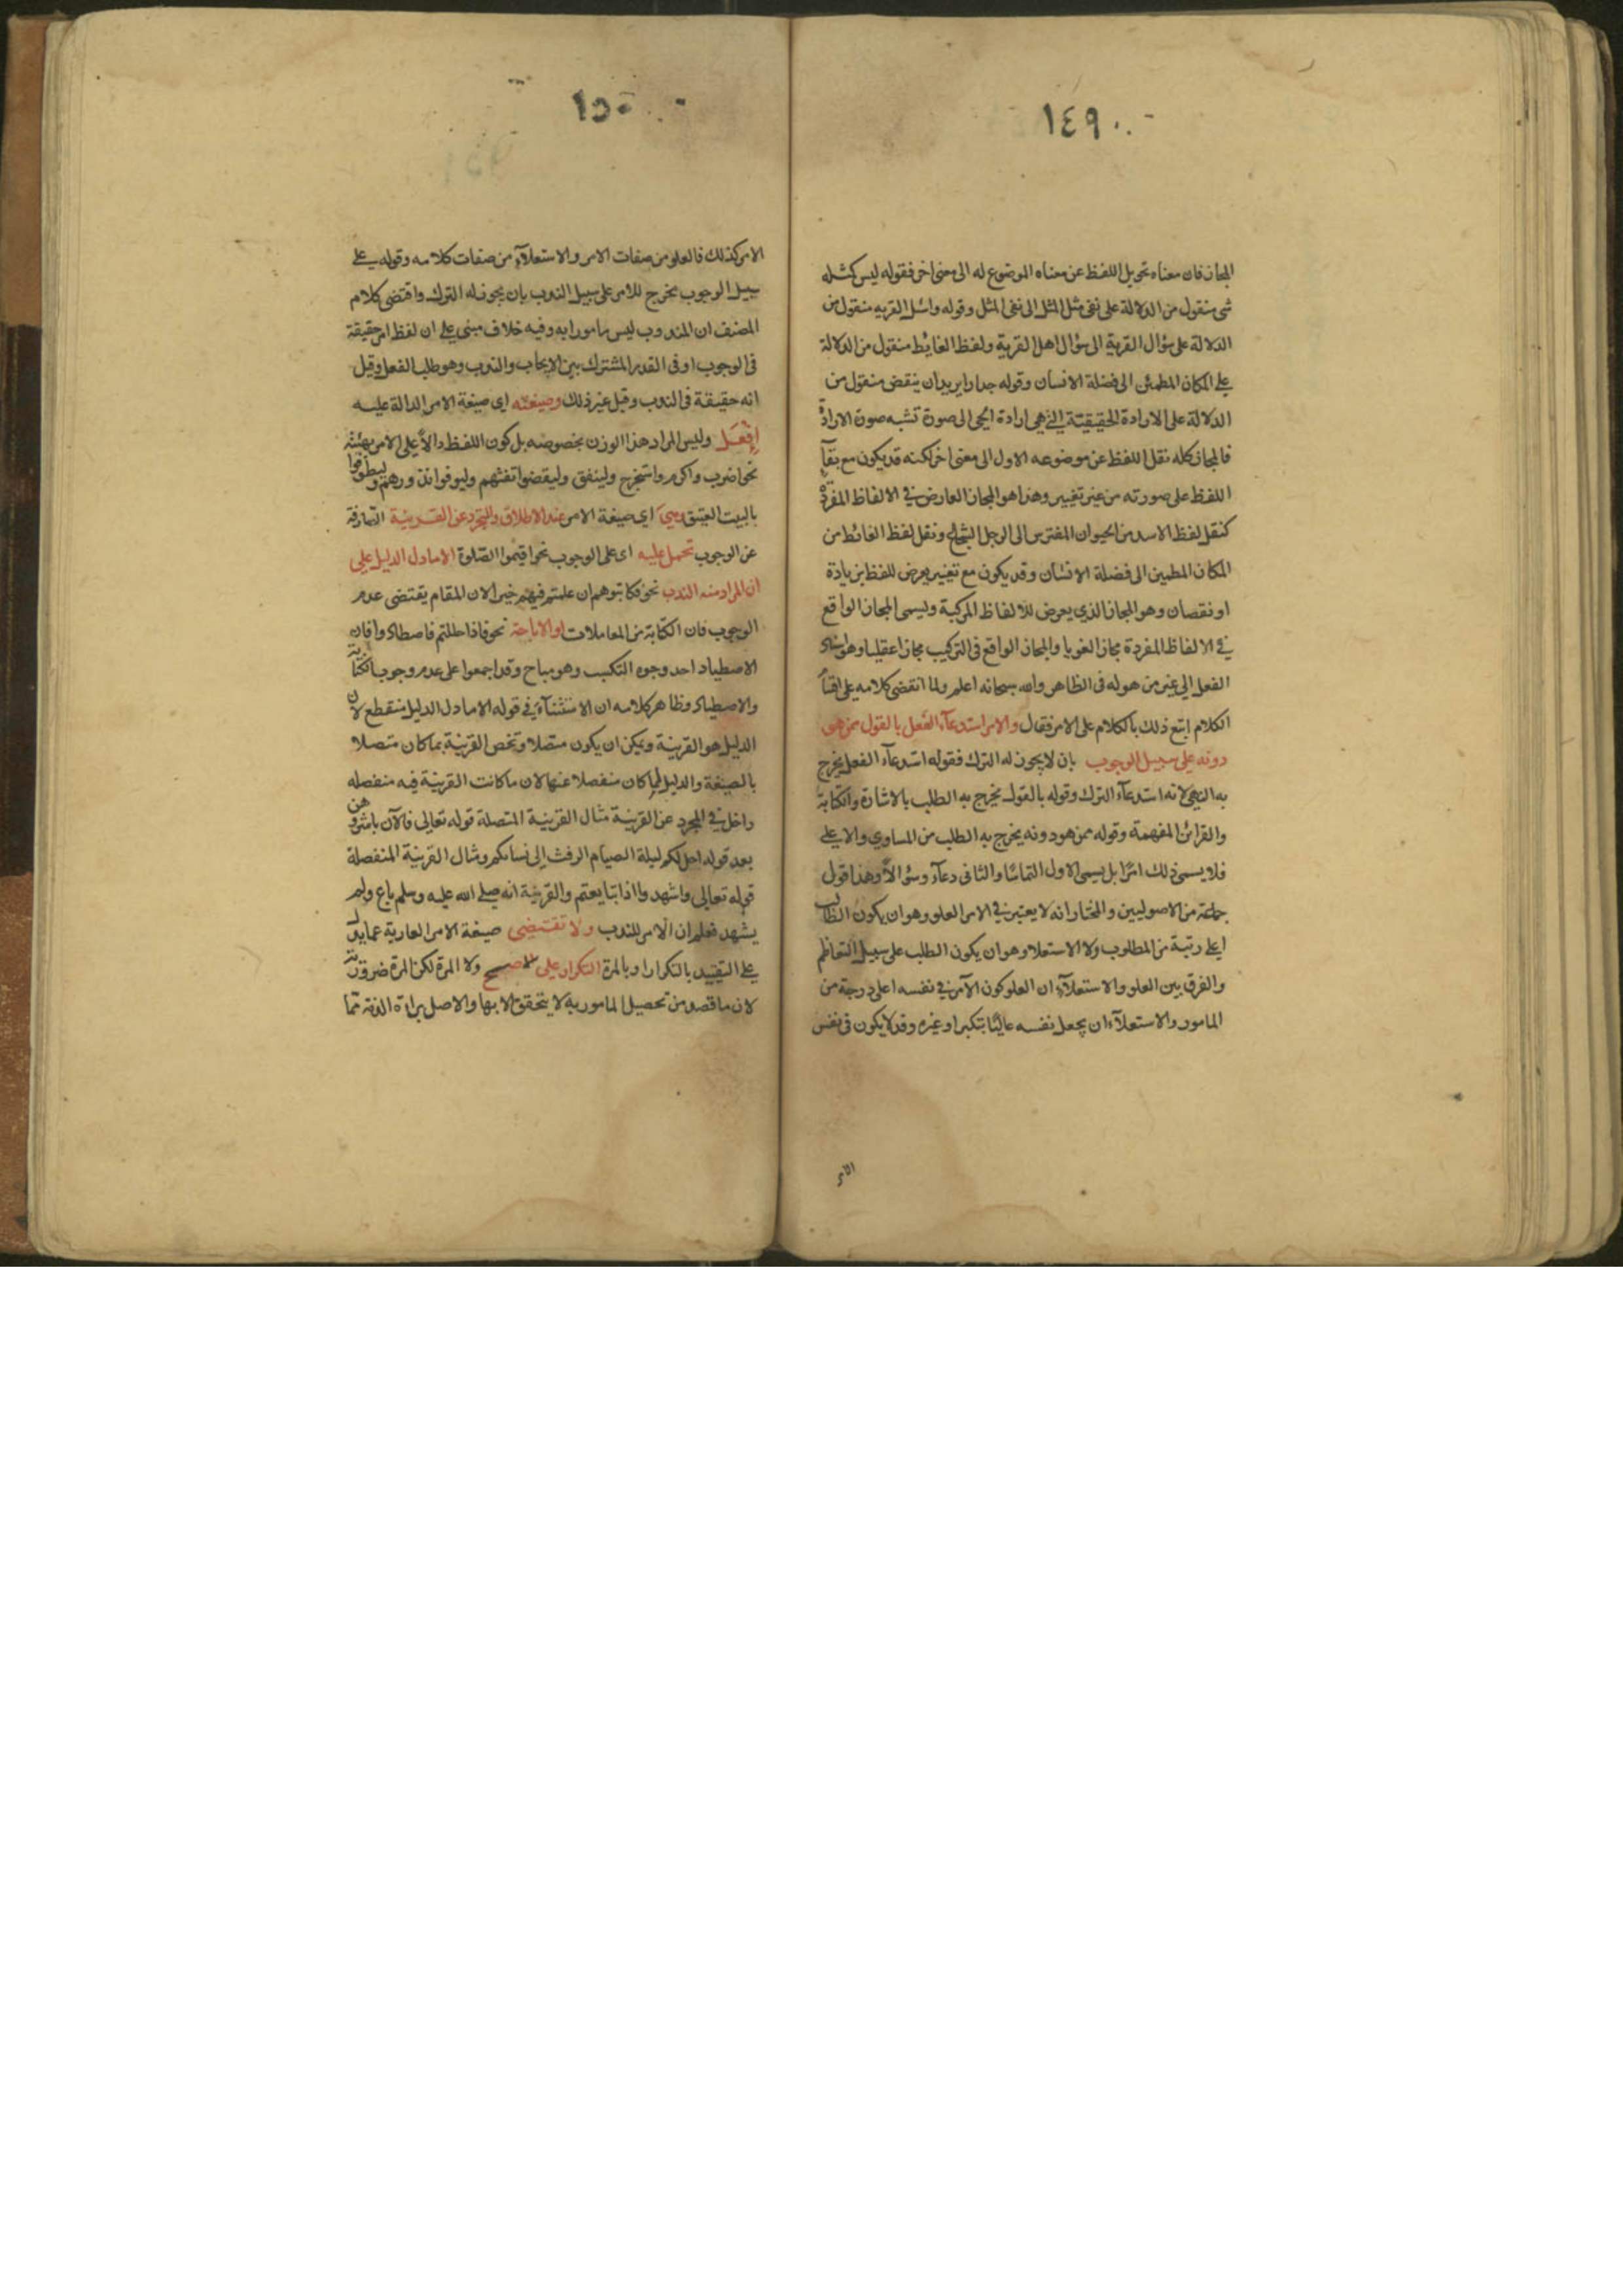 ١٤٩٠
المجاز فان معناه تحويل اللفظ عن معناه الموضوع له الى معنى اخر فقوله ليس كمثله
شي منقول من الدلالة على نفي مثل المثل الى نفي المثل وقوله واسئل القريه منقول من
الدلالة على سؤال القرية الى سؤال اهل القرية ولفظ الغايط منقول من الدلالة
على المكان المطمئن الى فضلة الانسان وقوله جدارا يريد ان ينقض منقول من
الدلالة على الارادة الحقيقيّة التي هي ارادة الحي الى صورة تشبه صورة الارادة
فالمجاز كله نقل اللفظ عن موضوعه الاول الى معنى اخر لكنه قد يكون مع بقآء
اللفظ على صورته من غير تغيير وهذا هو المجاز العارض في الالفاظ المفردة
كنقل لفظ الاسد من الحيوان المفترس الى الرجل الشجاع ونقل لفظ الغائط من
المكان المطمين الى فضلة الانسان وقد يكون مع تغيير يعرض للفظ بزيادة
او نقصان وهو المجاز الذي يعرض للالفاظ المركبة ويسمى المجاز الواقع
في الالفاظ المفردة مجازا لغويا والمجاز الواقع في التركيب مجازا عقليا وهو اسناد
الفعل الى غير من هو له في الظاهر والله سبحانه اعلم ولما انقضى كلامه على اقسام
الكلام اتبع ذلك بالكلام على الامر فقال والامر استدعآء الفعل بالقول ممن هو
دونه على سبيل الوجوب بان لا يجوز له الترك فقوله استدعآء الفعل يخرج
به النهي لانه استدعآء الترك وقوله بالقول يخرج به الطلب بالاشارة والكتابة
والقرائن المفهمة وقوله ممن هو دونه يخرج به الطلب من المساوي والاعلى
فلا يسمى ذلك امرًا بل يسمى الاول التماسًا والثاني دعآء وسؤالاً وهذا قول
جماعة من الاصوليين والمختار انه لا يعتبر في الامر العلو وهو ان يكون الطالب
اعلى رتبة من المطلوب ولا الاستعلا وهو ان يكون الطلب على سبيل التعاظم
والفرق بين العلو والاستعلآء ان العلو كون الآمر في نفسه اعلى درجة من
المامور والاستعلآء ان يجعل نفسه عاليًا بتكبر او غيره وقد لا يكون في نفس
الامر
١٥٠
الامر كذلك فالعلو من صفات الامر والاستعلآء من صفات كلامه وقوله على
سبيل الوجوب مخرج للامر على سبيل الندب بان يجوز له الترك واقتضى كلام
المصنف ان المندوب ليس مامورا به وفيه خلاف مبني على ان لفظ امر حقيقة
في الوجوب او في القدر المشترك بين الايجاب والندب وهو طلب الفعل وقيل
انه حقيقة في الندب وقيل غير ذلك وصيغته اي صيغة الامر الدالة عليه
إفْعَل وليس المراد هذا الوزن بخصوصه بل كون اللفظ دالاًّ على الامر بهيئته
نحو اضرب واكرم واستخرج ولينفق وليقضوا تفثهم وليوفوا نذورهم وليطوفوا
بالبيت العتيق وهي اي صيغة الامر عند الاطلاق والتجرد عن القرينة الصّارفة
عن الوجوب تحمل عليه اي على الوجوب نحو اقيموا الصّلوة الا ما دل الدليل على
ان المراد منه الندب نحو فكاتبوهم ان علمتم فيهم خيرا لان المقام يقتضي عدم
الوجوب فان الكتابة من المعاملات او الاباحة نحو فاذا حللتم فاصطادوا فان
الاصطياد احد وجوه التكسب وهو مباح وقد اجمعوا على عدم وجوب الكتابة
والاصطياد وظاهر كلامه ان الاستثنآء في قوله الا ما دل الدليل منقطع لان
الدليل هو القرينة ويمكن ان يكون متصلا وتخص القرينة بما كان متصلا
بالصيغة والدليل لما كان منفصلا عنها لان ما كانت القرينة فيه منفصله
داخل في المجرد عن القرينة مثال القرينة المتصلة قوله تعالى فالآن باشروهن
بعد قوله احل لكم ليلة الصيام الرفث الى نسائكم ومثال القرينة المنفصلة
قوله تعالى واشهدوا اذا تبايعتم والقرينة انه صلى الله عليه وسلم باع ولم
يشهد فعلم ان الامر للندب ولا تقتضي صيغة الامر العارية عما يدل
على التقييد بالتكرار او بالمرة التكرار على الصحيح ولا المرة لكن المرة ضرورية
لان ما قصد من تحصيل المامور به لا يتحقق الا بها والاصل براءة الذمة مما